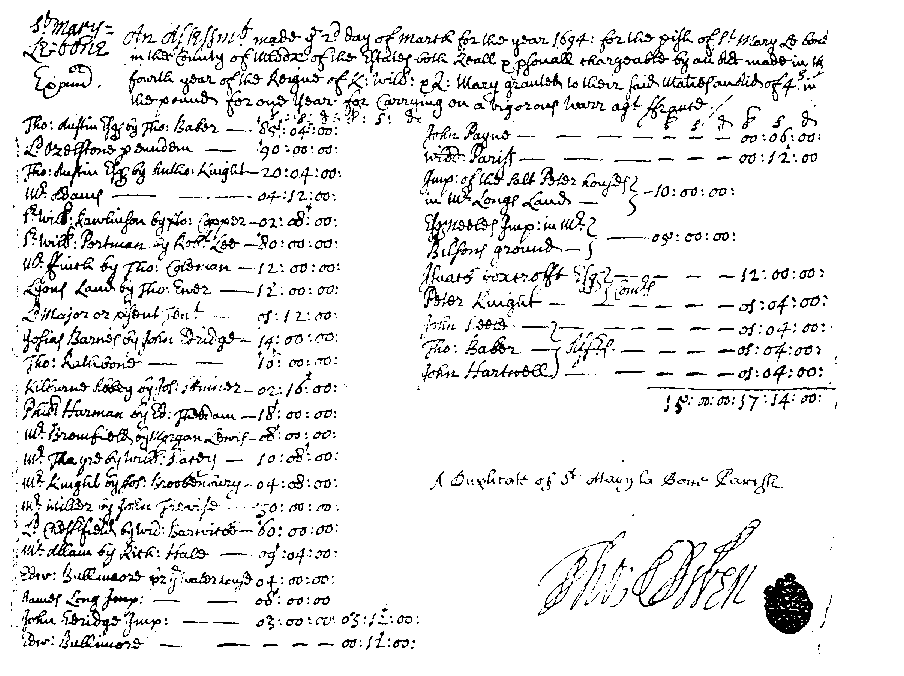 St Mary =
Le-bone
Expand.
An Assessmt made ye 2d day of March for the year 1694: for the pish of St Mary Le bone
in the County of Middx of the Estates both Reall & psonall chargeable by an Act made in the
fourth year of the Reigne of K: Will: & Q: Mary granted to their said Maties an Aid of 4s. in
the pound for one Year for Carrying on a vigorous Warr agt ffrance
Tho: Austin Esq by Tho: Baber — 85: 04: 00:
Ld Ozelstone p eundem — 90: 00: 00:
Tho: Austin Esq by Antho: Knight — 20: 04: 00:
Mr Adams — 04: 12: 00:
Sr Will: Rawlinson by Jo: Cooper — 02: 08: 00:
Sr Will: Portman by Robt Lee — 80: 00: 00:
Mr ffinch by Tho: Coleman — 12: 00: 00:
Lyons Land by Tho: Ever — 12: 00: 00:
Ld Major or psent Tent — 01: 12: 00:
Josias Barnes by John Edridge — 14: 00: 00:
Tho: Rathbone — 10: 00: 00:
Kilburne Abbey by Jos: — 02: 16: 00:
Paul Harman by Ed: — 18: 00: 00:
Mr Bromfield by Morgan Lewis — 08: 00: 00:
Mr Thayre by Will: — 10: 08: 00:
Mr Knight by Jos: Brookenbury — 04: 08: 00:
Mr Miller by John — 30: 00: 00:
Ld Chesterfield by Wid: Bartwick — 60: 00: 00:
Mr Allam by Rich: Hale — 09: 04: 00:
Edw: Bullimore pr ye waterhouse 04: 00: 00:
James Long Imp: — 08: 00: 00
John Edridge Imp: — 03: 00: 00: 03: 12: 00:
Edw: Bullimore — 00: 12: 00:
£ s d £ s d
John Payne — 00: 06: 00:
Widd Parish — 00: 12: 00
Imp: of the Salt Peter houses
in Mr Longs Land — 10: 00: 00:
Imp: in Mr
Bilsons ground — 05: 00: 00:
ffoxcrofft Esq — 12: 00: 00:
Peter Knight — Comrs — 01: 04: 00:
John Leece — 01: 04: 00:
Tho: Baber — Assrs — 01: 04: 00:
John Hartwell — 01: 04: 00:
15: 00: 00: 17: 14: 00:
A Duplicate of St Mary la Bone Parish
Tho: Owen